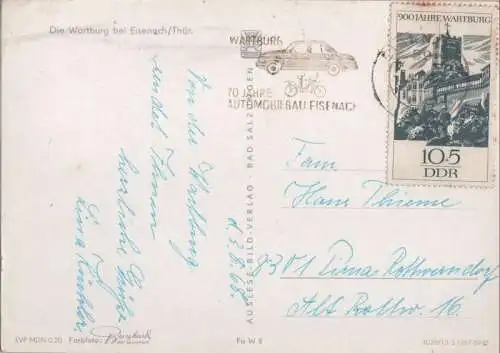 Die Wartburg bei Eisenach/Thür.
WARTBURG
70 JAHRE
AUTOMOBILBAU EISENACH
900 JAHRE WARTBURG
10+5
DDR
Von der Wartburg
sendet Ihnen
herzliche Grüße
AUSLESE-BILD-VERLAG BAD SALZUNGEN
Fam
Hans Thieme
8301 Pirna Rottwerndorf
Alt Rottw. 16
EVP MDN 0.20 Farbfoto:
Fa W 8